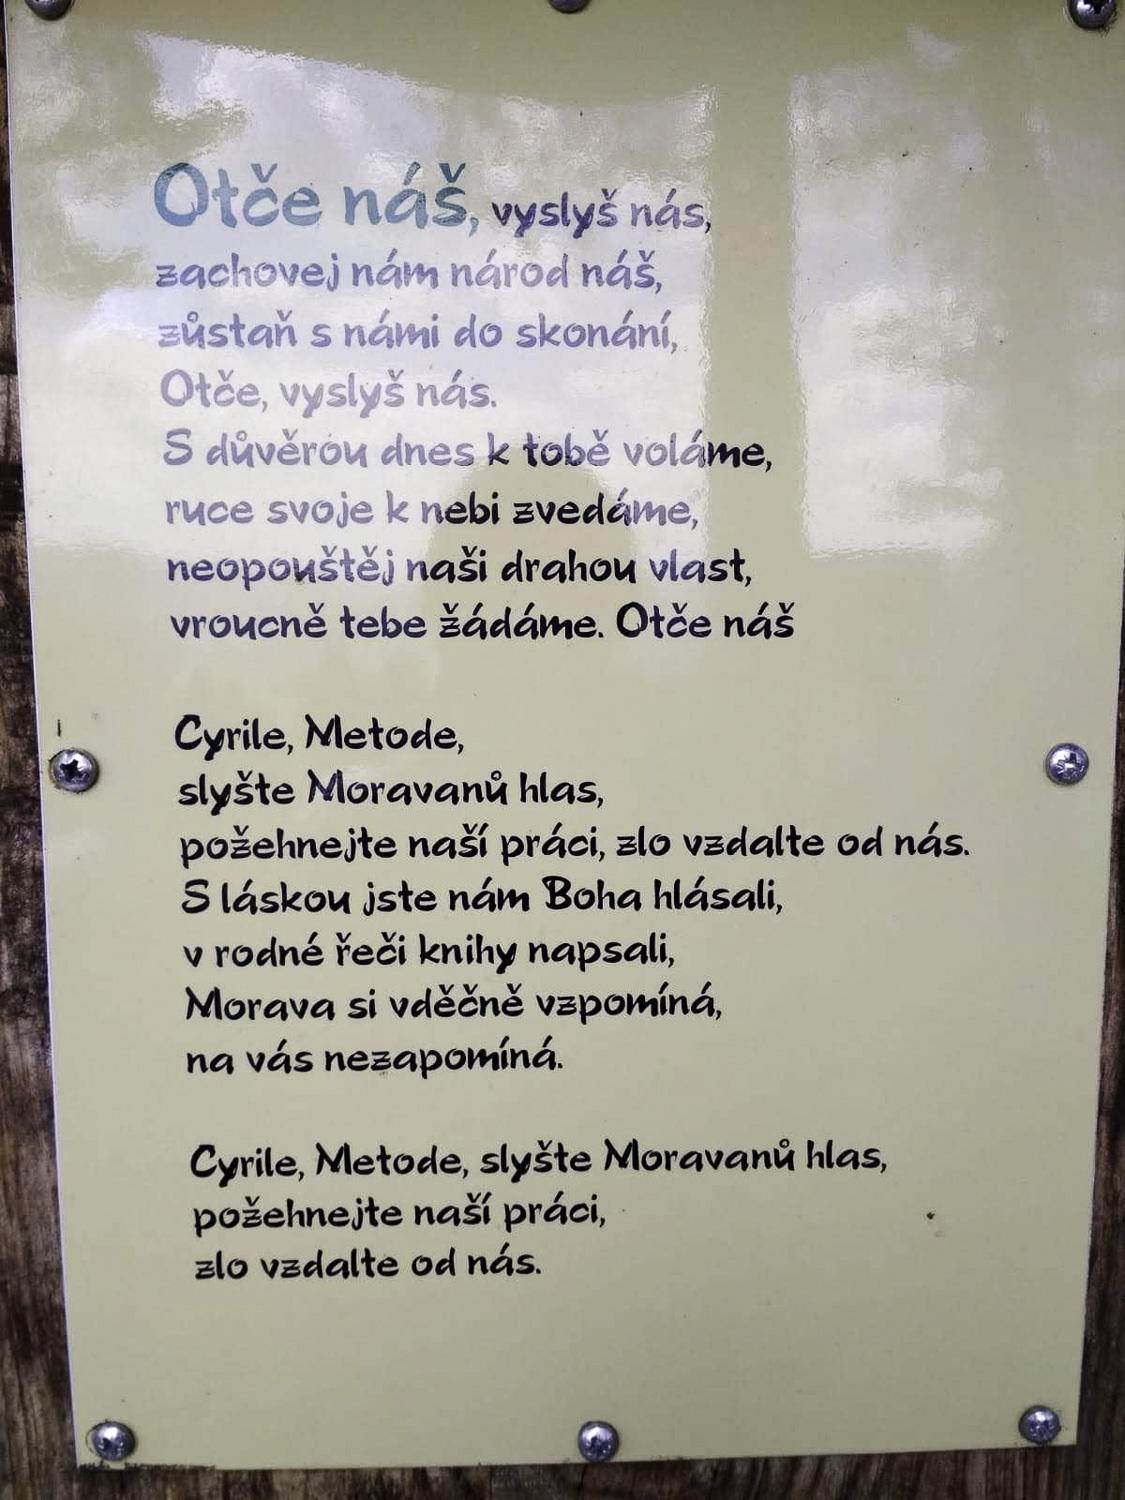 Otče náš, vyslyš nás,
zachovej nám národ náš,
zůstaň s námi do skonání,
Otče, vyslyš nás.
S důvěrou dnes k tobě voláme,
ruce svoje k nebi zvedáme,
neopouštěj naši drahou vlast,
vroucně tebe žádáme. Otče náš
Cyrile, Metode,
slyšte Moravanů hlas,
požehnejte naší práci, zlo vzdalte od nás.
S láskou jste nám Boha hlásali,
v rodné řeči knihy napsali,
Morava si vděčně vzpomíná,
na vás nezapomíná.
Cyrile, Metode, slyšte Moravanů hlas,
požehnejte naší práci,
zlo vzdalte od nás.